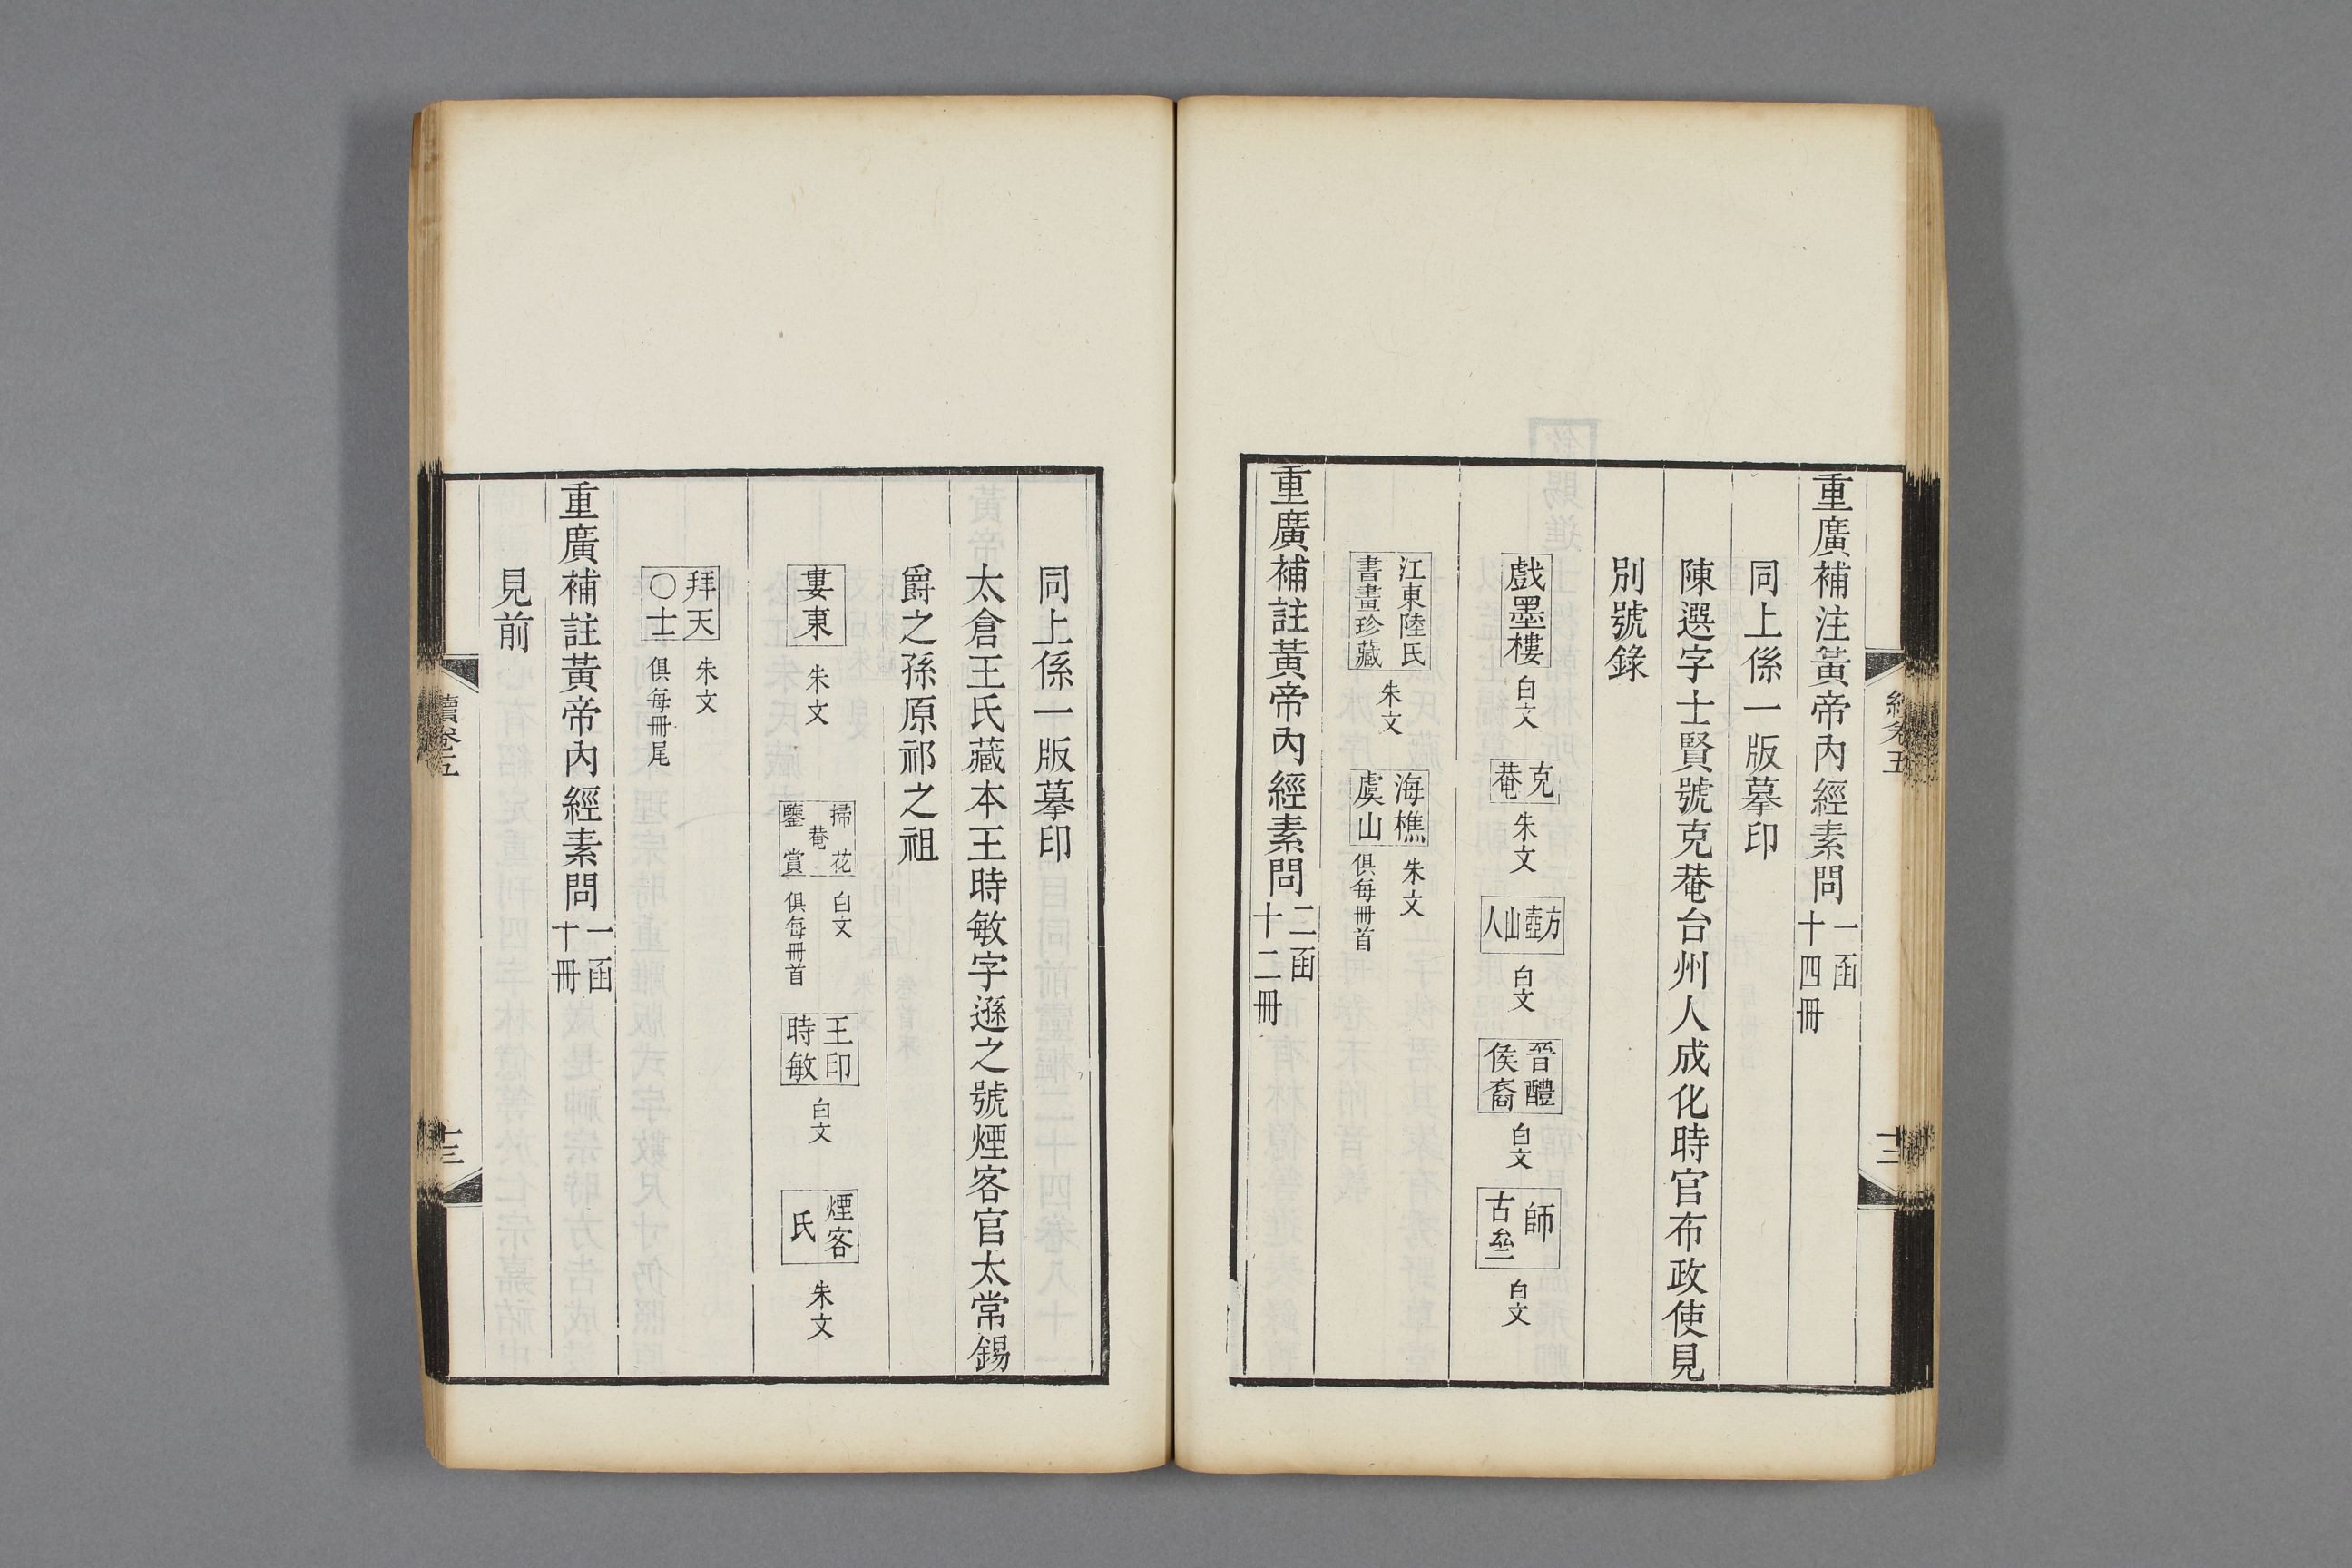 重廣補注黃帝內經素問一函十四冊
同上係一版摹印
陳選字士賢號克菴台州人成化時官布政使見
別號錄
戲墨樓 白文 克菴 朱文 方壺山人 白文 晉醴侯裔 白文 師古垒 白文
江東陸氏書畫珍藏 朱文 海樵虞山 朱文 俱每冊首
重廣補註黃帝內經素問二函十二冊
同上係一版摹印
太倉王氏藏本王時敏字遜之號煙客官太常錫
爵之孫原祁之祖
婁東 朱文 掃花菴鑒賞 白文 俱每冊首 王印時敏 白文 煙客氏 朱文
拜天○士 朱文 俱每冊尾
重廣補註黃帝內經素問一函十冊
見前
續卷五
十三